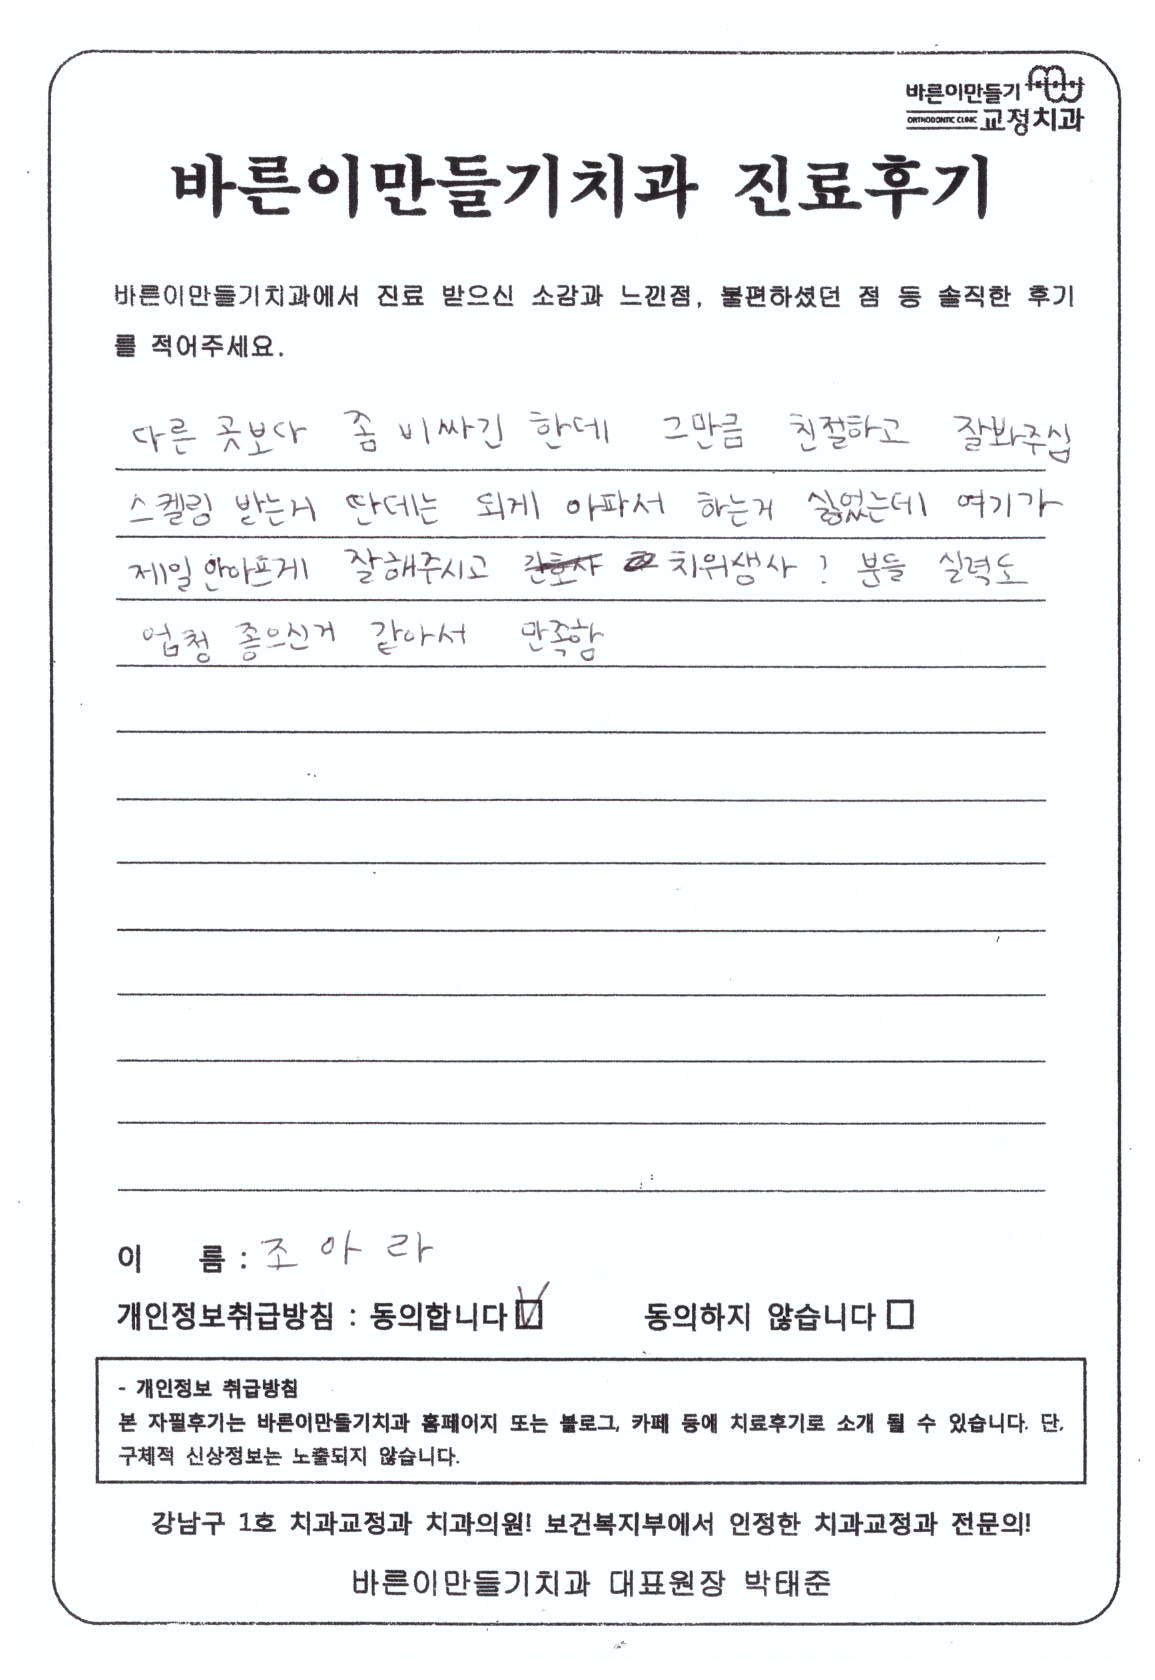 바른이만들기
ORTHODONTIC CLINIC 교정치과
바른이만들기치과 진료후기
바른이만들기치과에서 진료 받으신 소감과 느낀점, 불편하셨던 점 등 솔직한 후기
를 적어주세요.
다른 곳보다 좀 비싸긴 한데 그만큼 친절하고 잘봐주심
스켈링 받는거 딴데는 되게 아파서 하는거 싫었는데 여기가
제일 안아프게 잘해주시고 간호사 치위생사? 분들 실력도
엄청 좋으신거 같아서 만족함
이 름 : 조 아 라
개인정보취급방침 : 동의합니다 ☑ 동의하지 않습니다 □
- 개인정보 취급방침
본 자필후기는 바른이만들기치과 홈페이지 또는 블로그, 카페 등에 치료후기로 소개 될 수 있습니다. 단,
구체적 신상정보는 노출되지 않습니다.
강남구 1호 치과교정과 치과의원! 보건복지부에서 인정한 치과교정과 전문의!
바른이만들기치과 대표원장 박태준